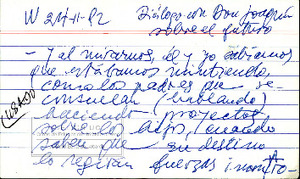 W 21-11-82 Diálogo con Don Joaquín
sobre el futuro
- y al mirarnos, él y yo sabíamos
que estábamos mintiendo,
como los padres que se
consuelan (hablando)
haciendo proyectos
sobre los hijos, cuando
saben que su destino
lo regirán fuerzas
48400